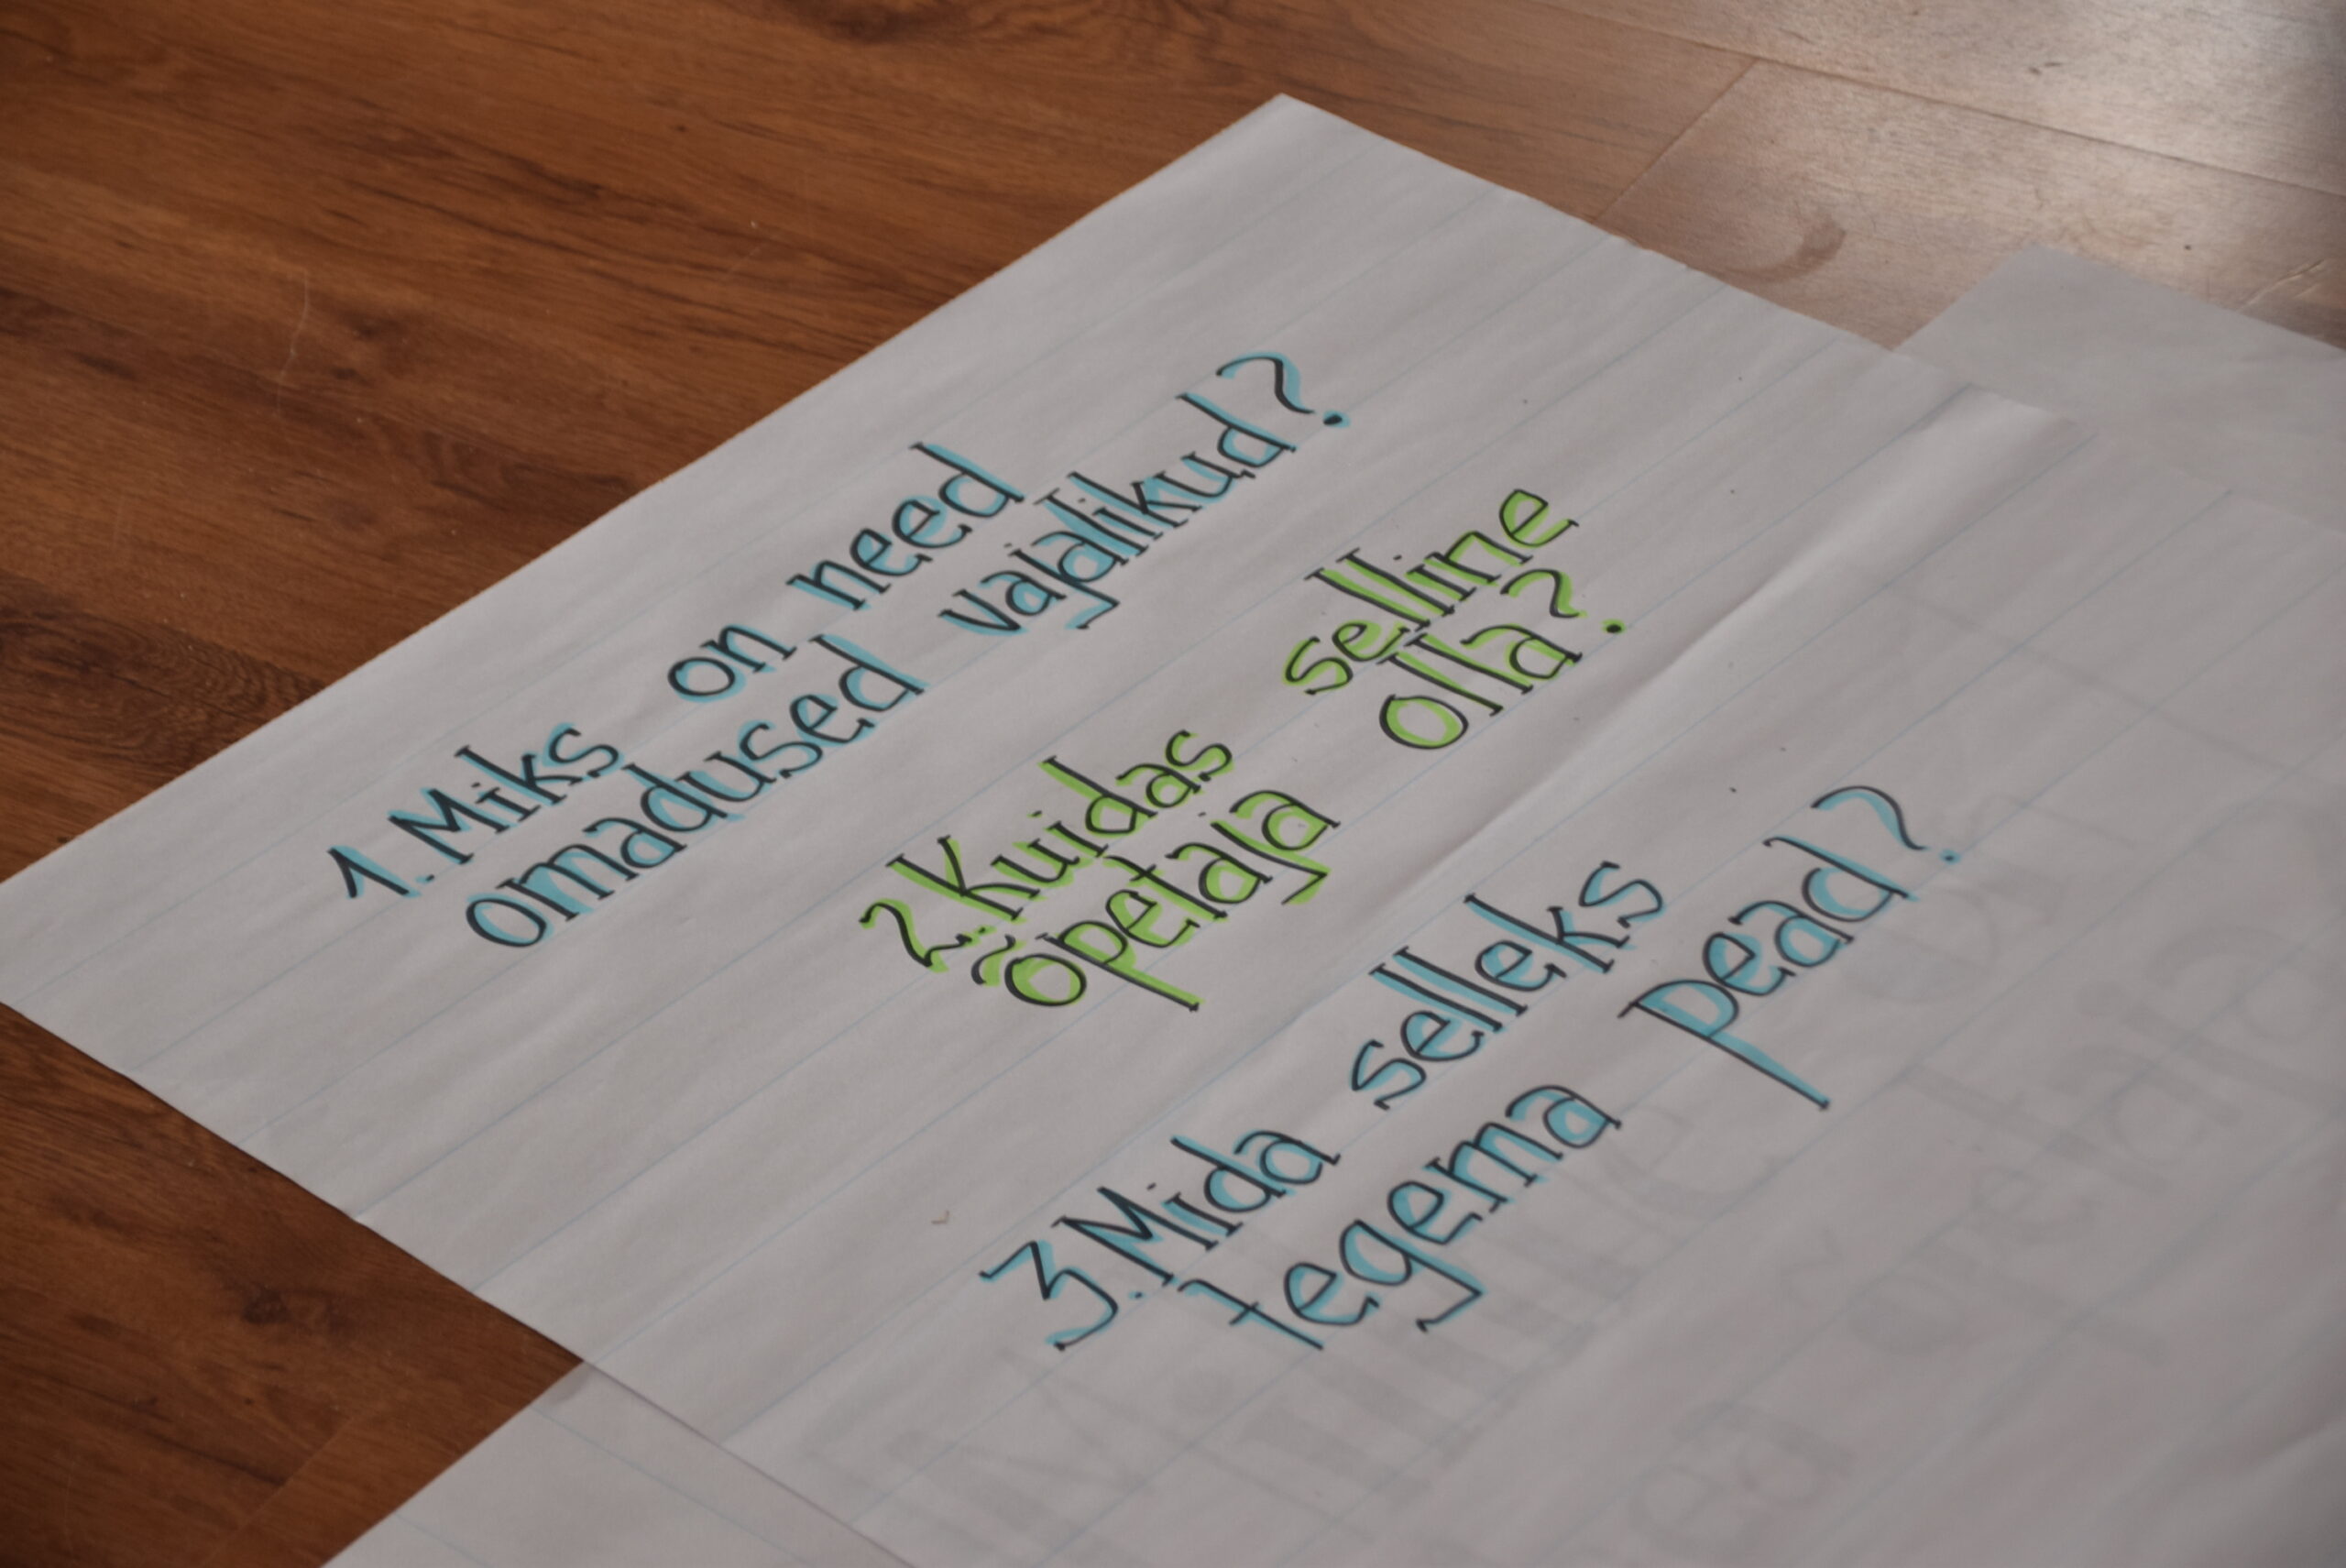 1. Miks on need
omadused vajalikud?
2. Kuidas selline
õpetaja olla?
3. Mida selleks
tegema pead?